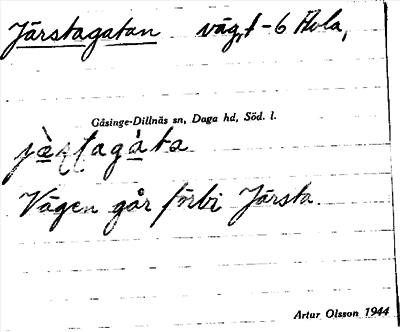 Järstagatan väg, t-6 Hola,
Gåsinge-Dillnäs sn, Daga hd, Söd. l.
jæ̀ʂʈagàta
Vägen går förbi Järsta
Artur Olsson 1944